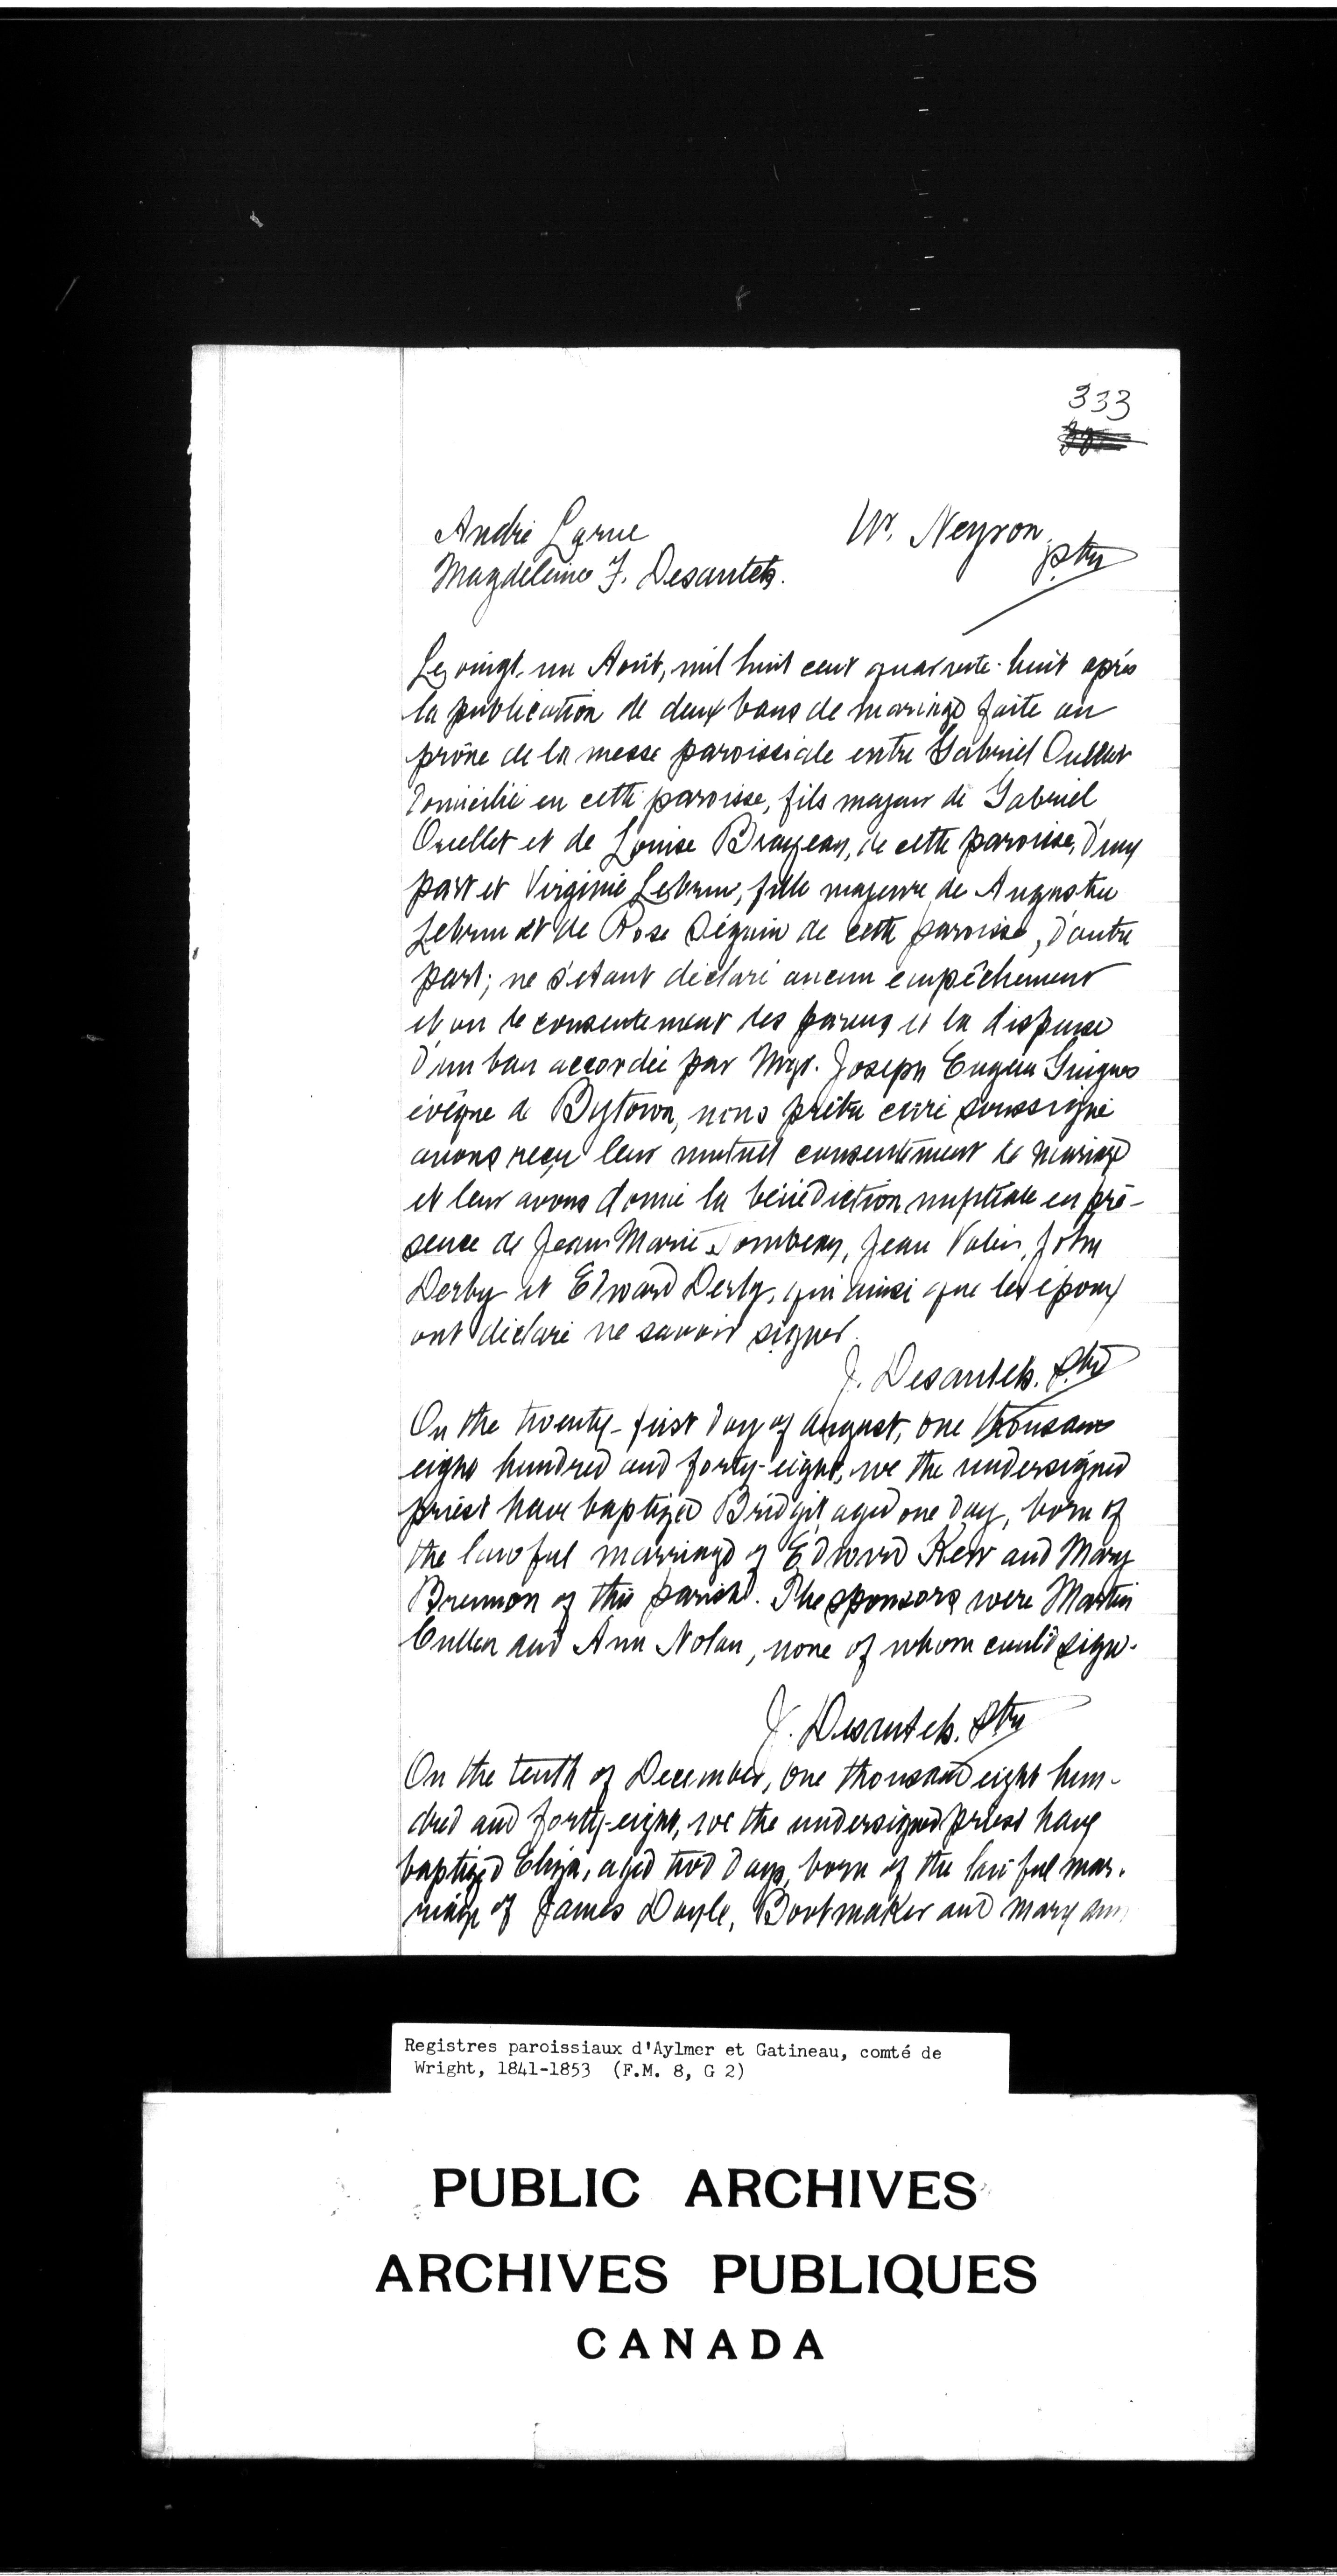 333
André Larue W. Neyron, ptre
Magdeleine F. Desautels.
Le vingt-un Août, mil huit cent quarante-huit après
la publication de deux bans de mariage faite au
prône de la messe paroissiale entre Gabriel Ouellet
domicilié en cette paroisse, fils majeur de Gabriel
Ouellet et de Louise Brazeau, de cette paroisse, d'une
part et Virginie Lebrun, fille majeure de Augustin
Lebrun et de Rose Séguin de cette paroisse, d'autre
part; ne s'étant déclaré aucun empêchement
et vu le consentement des parens et la dispense
d'un ban accordée par Mgr. Joseph Eugène Guigues
évêque de Bytown, nous prêtre curé soussigné
avons reçu leur mutuel consentement de mariage
et leur avons donné la bénédiction nuptiale en pré-
sence de Jean Marie Jombeau, Jean Valin, John
Derby et Edward Derby, qui ainsi que les époux
ont déclaré ne savoir signer.
J. Desautels. Ptre
On the twenty-first day of August, one thousand
eight hundred and forty-eight, we the undersigned
priest have baptized Bridgit aged one day, born of
the lawful marriage of Edward Kerr and Mary
Brennon of this parish. The sponsors were Martin
Cullen and Ann Nolan, none of whom could sign.
J. Desautels. Ptre
On the tenth of December, one thousand eight hun-
dred and forty-eight, we the undersigned priest have
baptized Eliza, aged two days, born of the lawful mar-
riage of James Doyle, Bootmaker and Mary Ann
Registres paroissiaux d'Aylmer et Gatineau, comté de
Wright, 1841-1853 (F.M. 8, G 2)
PUBLIC ARCHIVES
ARCHIVES PUBLIQUES
CANADA